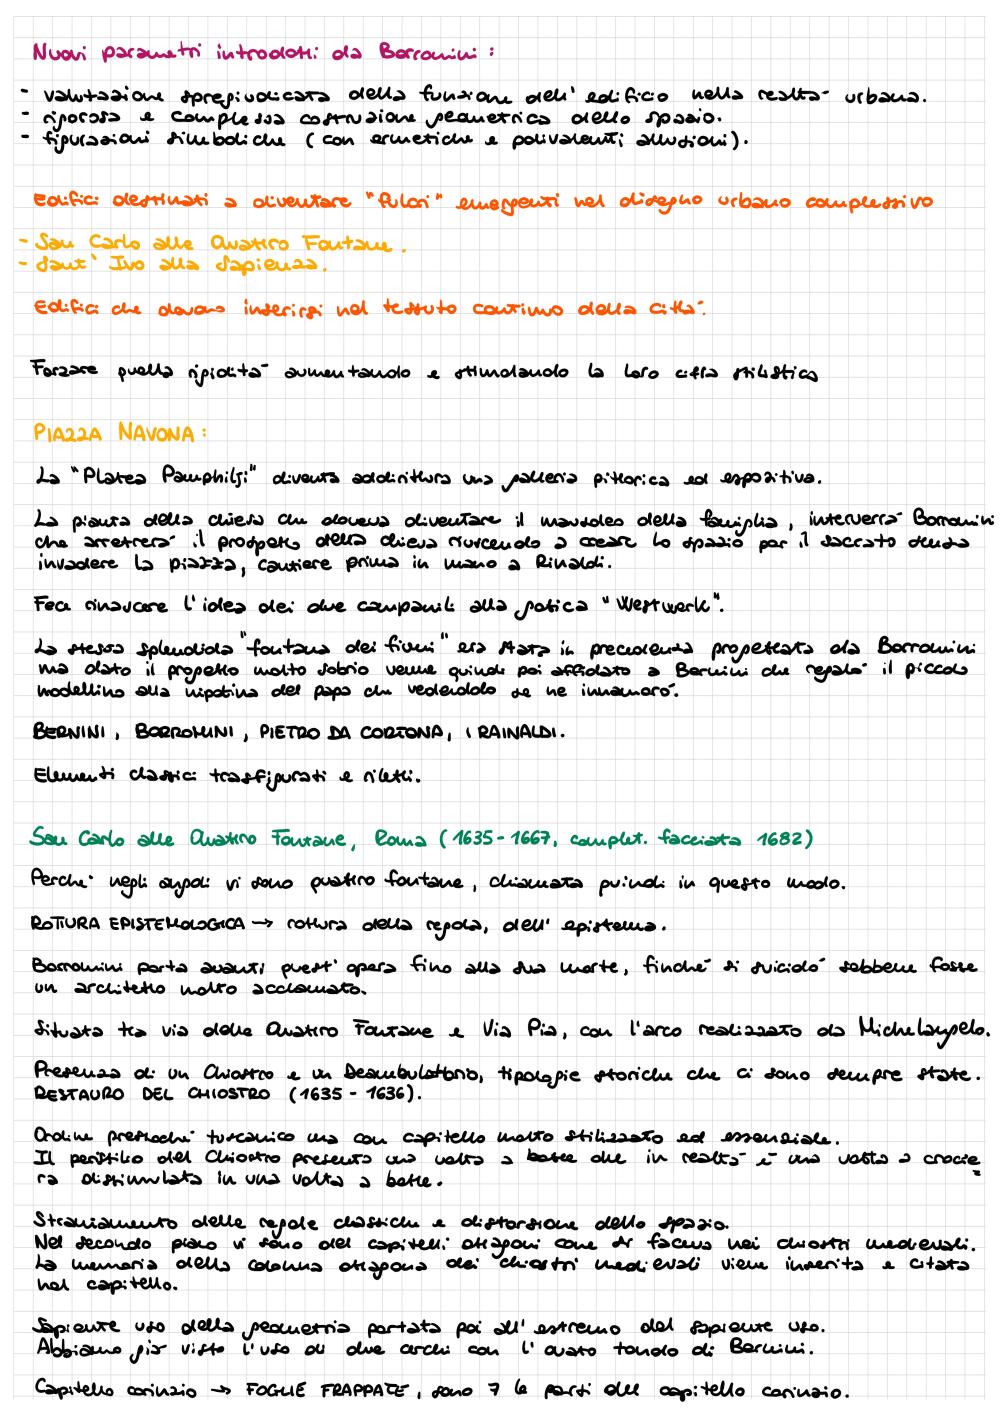 Nuovi parametri introdotti da Borromini :
- valutazione spregiudicata della funzione dell' edificio nella realtà urbana.
- rigorosa e complessa costruzione geometrica dello spazio.
- figurazioni simboliche ( con ermetiche e polivalenti allusioni).
Edifici destinati a diventare "fulcri" emergenti nel disegno urbano complessivo
- San Carlo alle Quattro Fontane .
- Sant' Ivo alla Sapienza.
Edifici che devono inserirsi nel tessuto continuo della città.
Forzare quella rigidità aumentando e stimolando la loro cifra stilistica
PIAZZA NAVONA :
La "Platea Pamphilji" diventa addirittura una galleria pittorica ed espositiva.
La pianta della chiesa che doveva diventare il mausoleo della famiglia , interverrà Borromini
che arretrerà il prospetto della chiesa riuscendo a creare lo spazio per il sacrato senza
invadere la piazza, cantiere prima in mano a Rinaldi.
Fece rinascere l'idea dei due campanili alla gotica "Westwerk".
La stessa splendida "fontana dei fiumi" era stata in precedenza progettata da Borromini
ma dato il progetto molto sobrio venne quindi poi affidato a Bernini che regalò il piccolo
modellino alla nipotina del papa che vedendolo se ne innamorò.
BERNINI , BORROMINI , PIETRO DA CORTONA, I RAINALDI.
Elementi classici trasfigurati e riletti.
San Carlo alle Quattro Fontane, Roma ( 1635 - 1667, complet. facciata 1682)
Perché negli angoli vi sono quattro fontane , chiamata quindi in questo modo.
ROTTURA EPISTEMOLOGICA → rottura della regola, dell' epistema.
Borromini porta avanti quest' opera fino alla sua morte, finché si suicidò sebbene fosse
un architetto molto acclamato.
Situata tra via delle Quattro Fontane e Via Pia, con l'arco realizzato da Michelangelo.
Presenza di un Chiostro e un Deambulatorio, tipologie storiche che ci sono sempre state.
RESTAURO DEL CHIOSTRO (1635 - 1636).
Ordine pressoché tuscanico ma con capitello molto stilizzato ed essenziale.
Il peristilio del Chiostro presenta una volta a botte che in realtà è una volta a crocie
ra dissimulata in una volta a botte.
Straniamento delle regole classiche e distorsione dello spazio.
Nel secondo piano vi sono dei capitelli ottagoni come si faceva nei chiostri medievali.
La memoria della colonna ottagona dei chiostri medievali viene inserita e citata
nel capitello.
Sapiente uso della geometria portata poi all' estremo del sapiente uso.
Abbiamo già visto l'uso di due archi con l' ovato tondo di Bernini.
Capitello corinzio → FOGLIE FRAPPATE , sono 7 le parti del capitello corinzio.